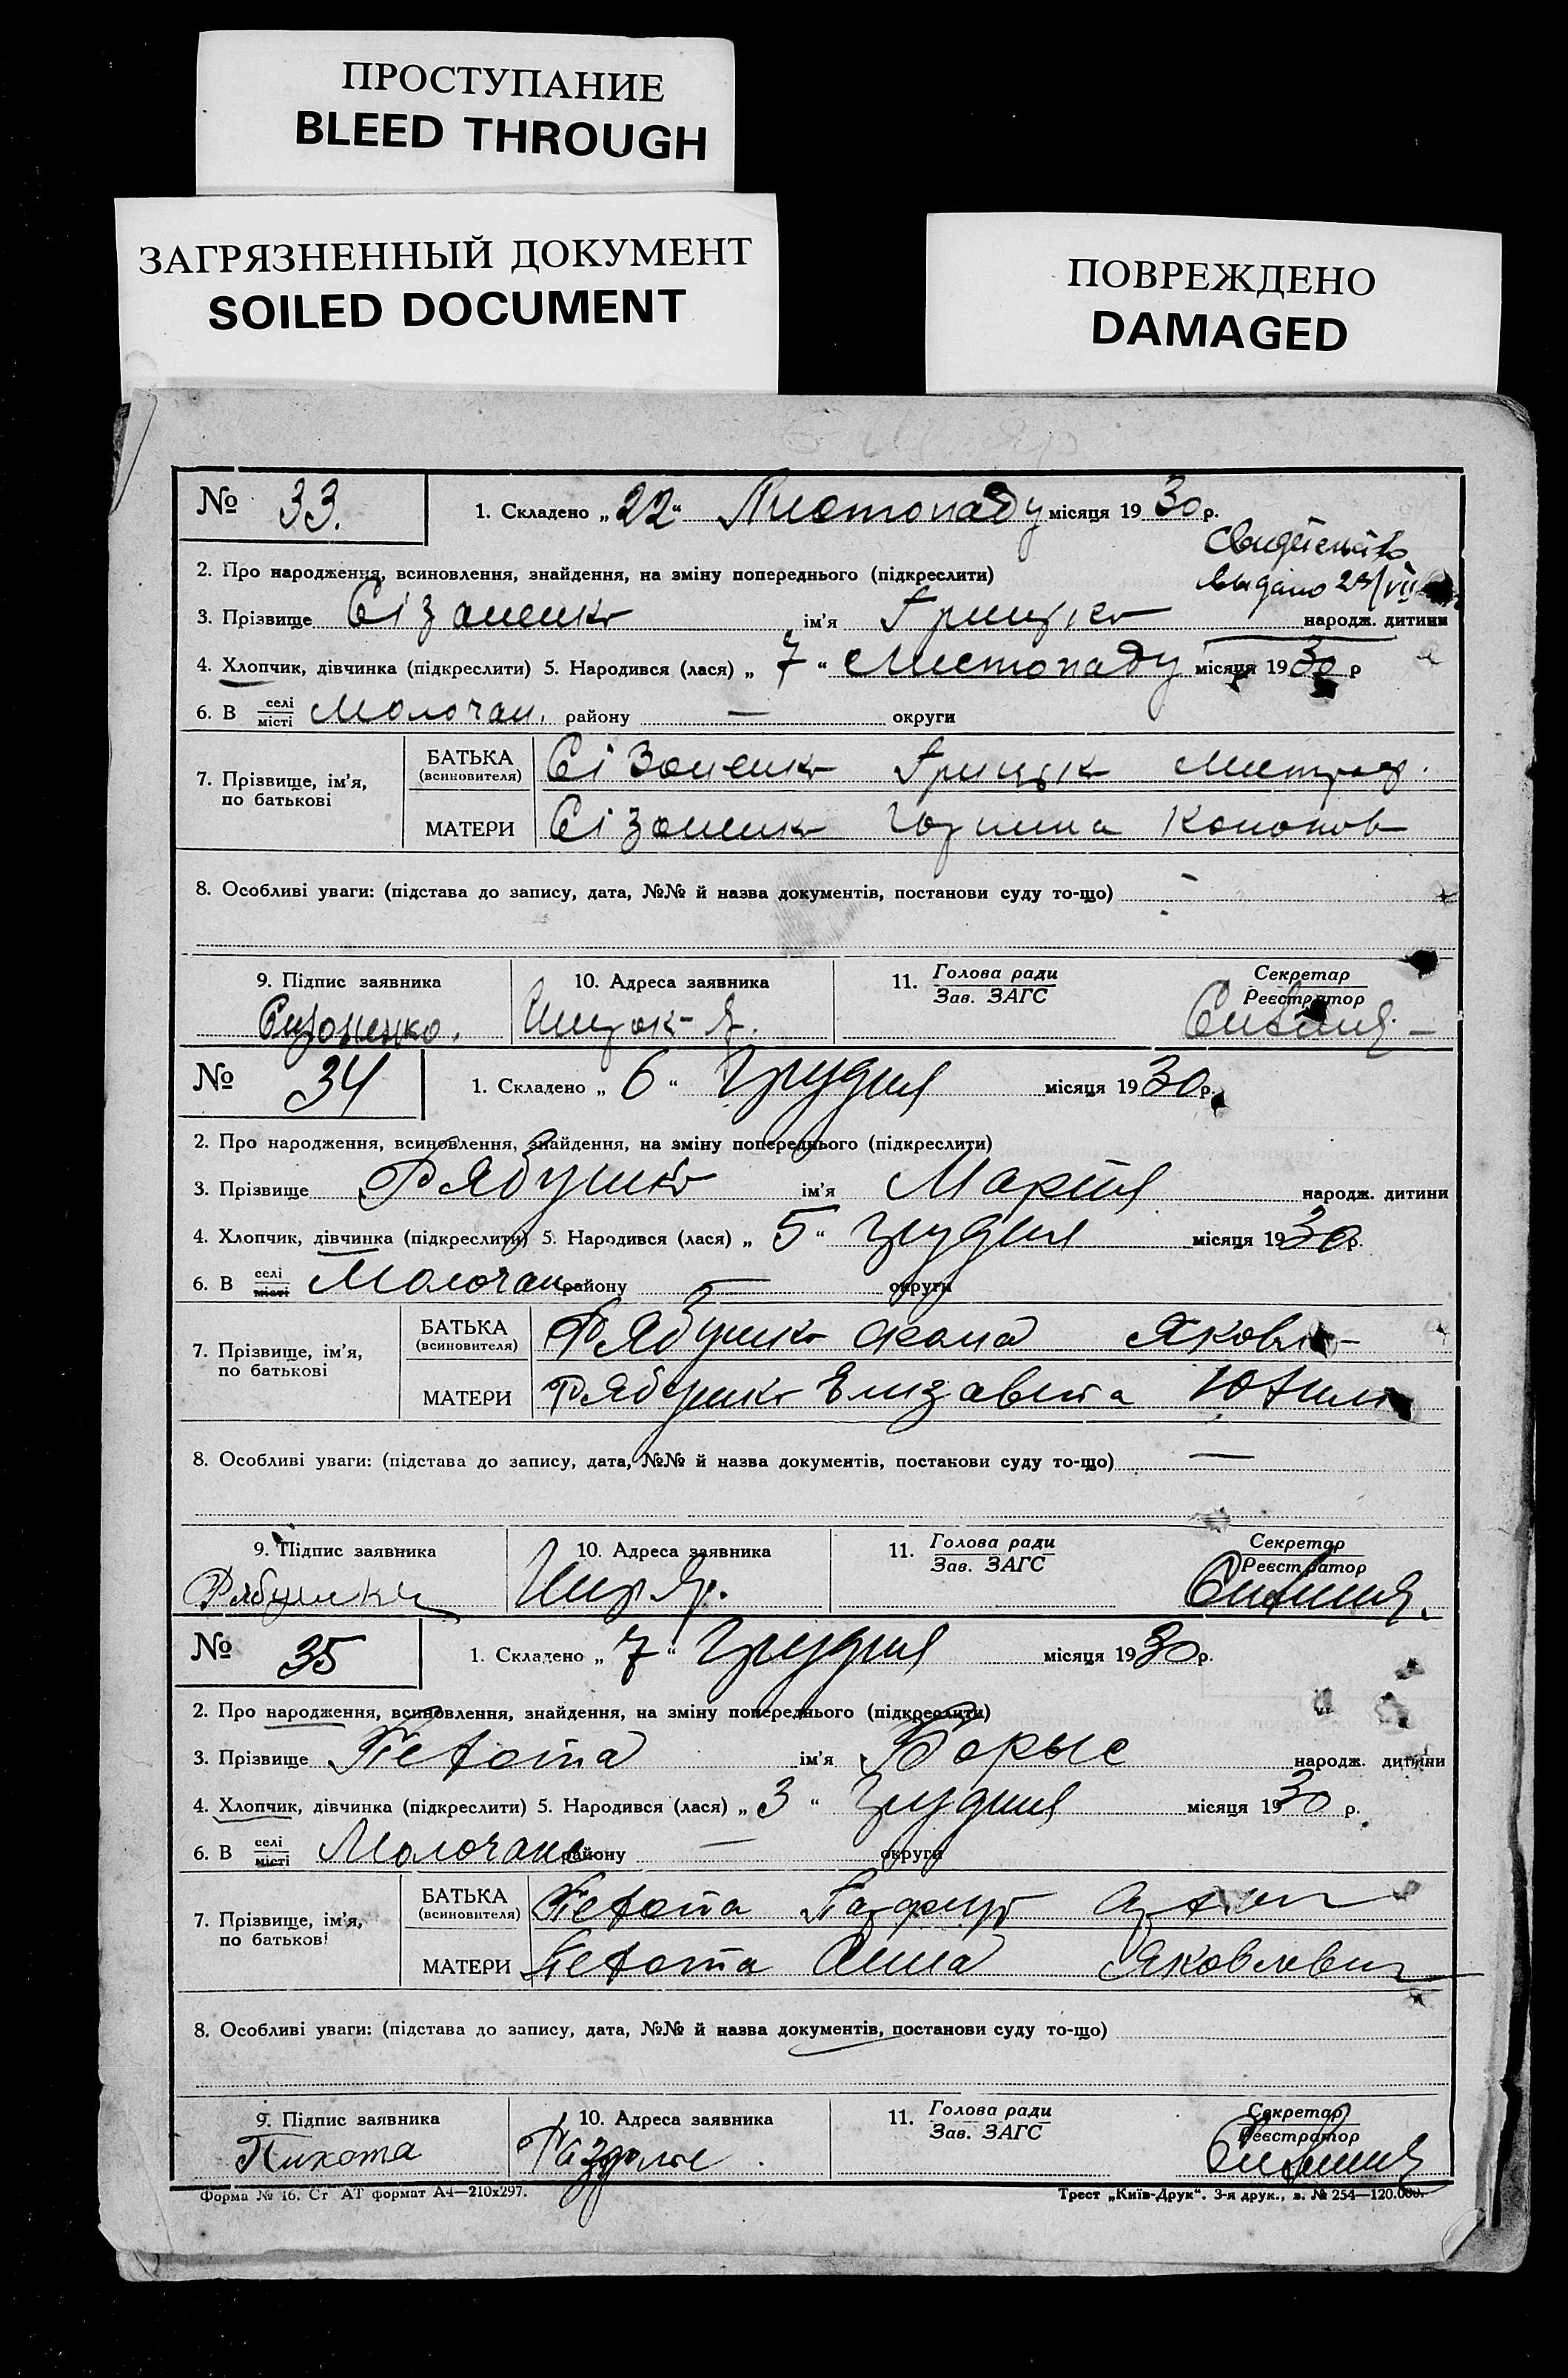 ПРОСТУПАНИЕ
BLEED THROUGH
ЗАГРЯЗНЕННЫЙ ДОКУМЕНТ
SOILED DOCUMENT
ПОВРЕЖДЕНО
DAMAGED
№ 33. 1. Складено „22“ Листопаду місяця 1930 р.
2. Про народження, всиновлення, знайдення, на зміну попереднього (підкреслити)
видано
3. Прізвище Сізоненко ім'я Грицько народж. дитини
4. Хлопчик, дівчинка (підкреслити) 5. Народився (лася) „7“ Листопаду місяця 1930 р
6. В селі місті Молочан. району — округи
7. Прізвище, ім'я, по батькові
БАТЬКА (всиновителя) Сізоненко Грицьк
МАТЕРИ Сізоненко
8. Особливі уваги: (підстава до запису, дата, №№ й назва документів, постанови суду то-що)
9. Підпис заявника 10. Адреса заявника 11. Голова ради Зав. ЗАГС Секретар Реєстратор
Сизоненко.
№ 34 1. Складено „6“ Грудня місяця 1930 р.
2. Про народження, всиновлення, знайдення, на зміну попереднього (підкреслити)
3. Прізвище Рябушко ім'я Марія народж. дитини
4. Хлопчик, дівчинка (підкреслити) 5. Народився (лася) „5“ грудня місяця 1930 р.
6. В селі місті Молочан району — округи
7. Прізвище, ім'я, по батькові
БАТЬКА (всиновителя) Рябушко Яковл
МАТЕРИ Рябушко Елизавета
8. Особливі уваги: (підстава до запису, дата, №№ й назва документів, постанови суду то-що) —
9. Підпис заявника 10. Адреса заявника 11. Голова ради Зав. ЗАГС Секретар Реєстратор
№ 35 1. Складено „7“ Грудня місяця 1930 р.
2. Про народження, всиновлення, знайдення, на зміну попереднього (підкреслити)
3. Прізвище Пехота ім'я Борыс народж. дитини
4. Хлопчик, дівчинка (підкреслити) 5. Народився (лася) „3“ Грудня місяця 1930 р.
6. В селі місті Молочанс району — округи
7. Прізвище, ім'я, по батькові
БАТЬКА (всиновителя) Пехота
МАТЕРИ Пехота Анна Яковлевн
8. Особливі уваги: (підстава до запису, дата, №№ й назва документів, постанови суду то-що)
9. Підпис заявника 10. Адреса заявника 11. Голова ради Зав. ЗАГС Секретар Реєстратор
Пихота
Форма № 16. Ст АТ формат А4—210х297. Трест „Київ-Друк“. 3-я друк., з. № 254—120.000.